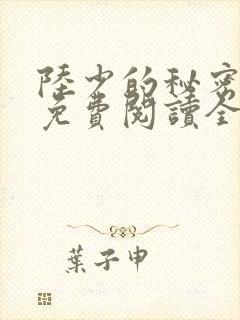 陸少的秘密
免費閱讀全
葉子申